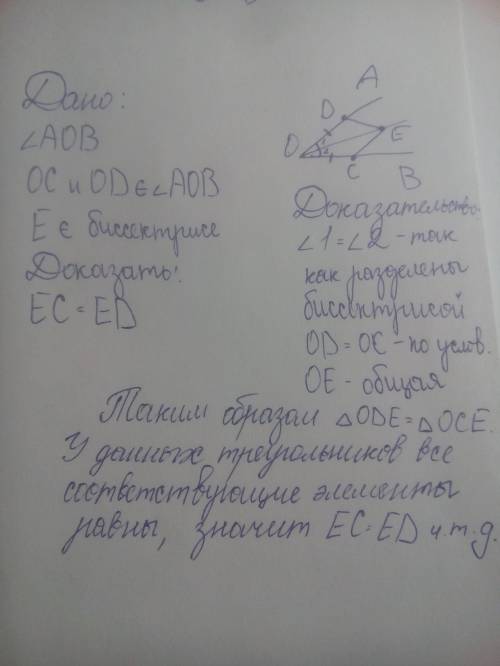 Дано:
∠AOB
OC и OD ∈ ∠AOB
E ∈ биссектрисе
Доказать:
EC = ED
A
D
E
O
1
2
C
B
Доказательство
∠1 = ∠2 - так
как разделены
биссектрисой
OD = OC - по услов.
OE - общая
Таким образам △ODE = △OCE.
У данных треугольников все
соответствующие элементы
равны, значит EC = ED ч.т.д.